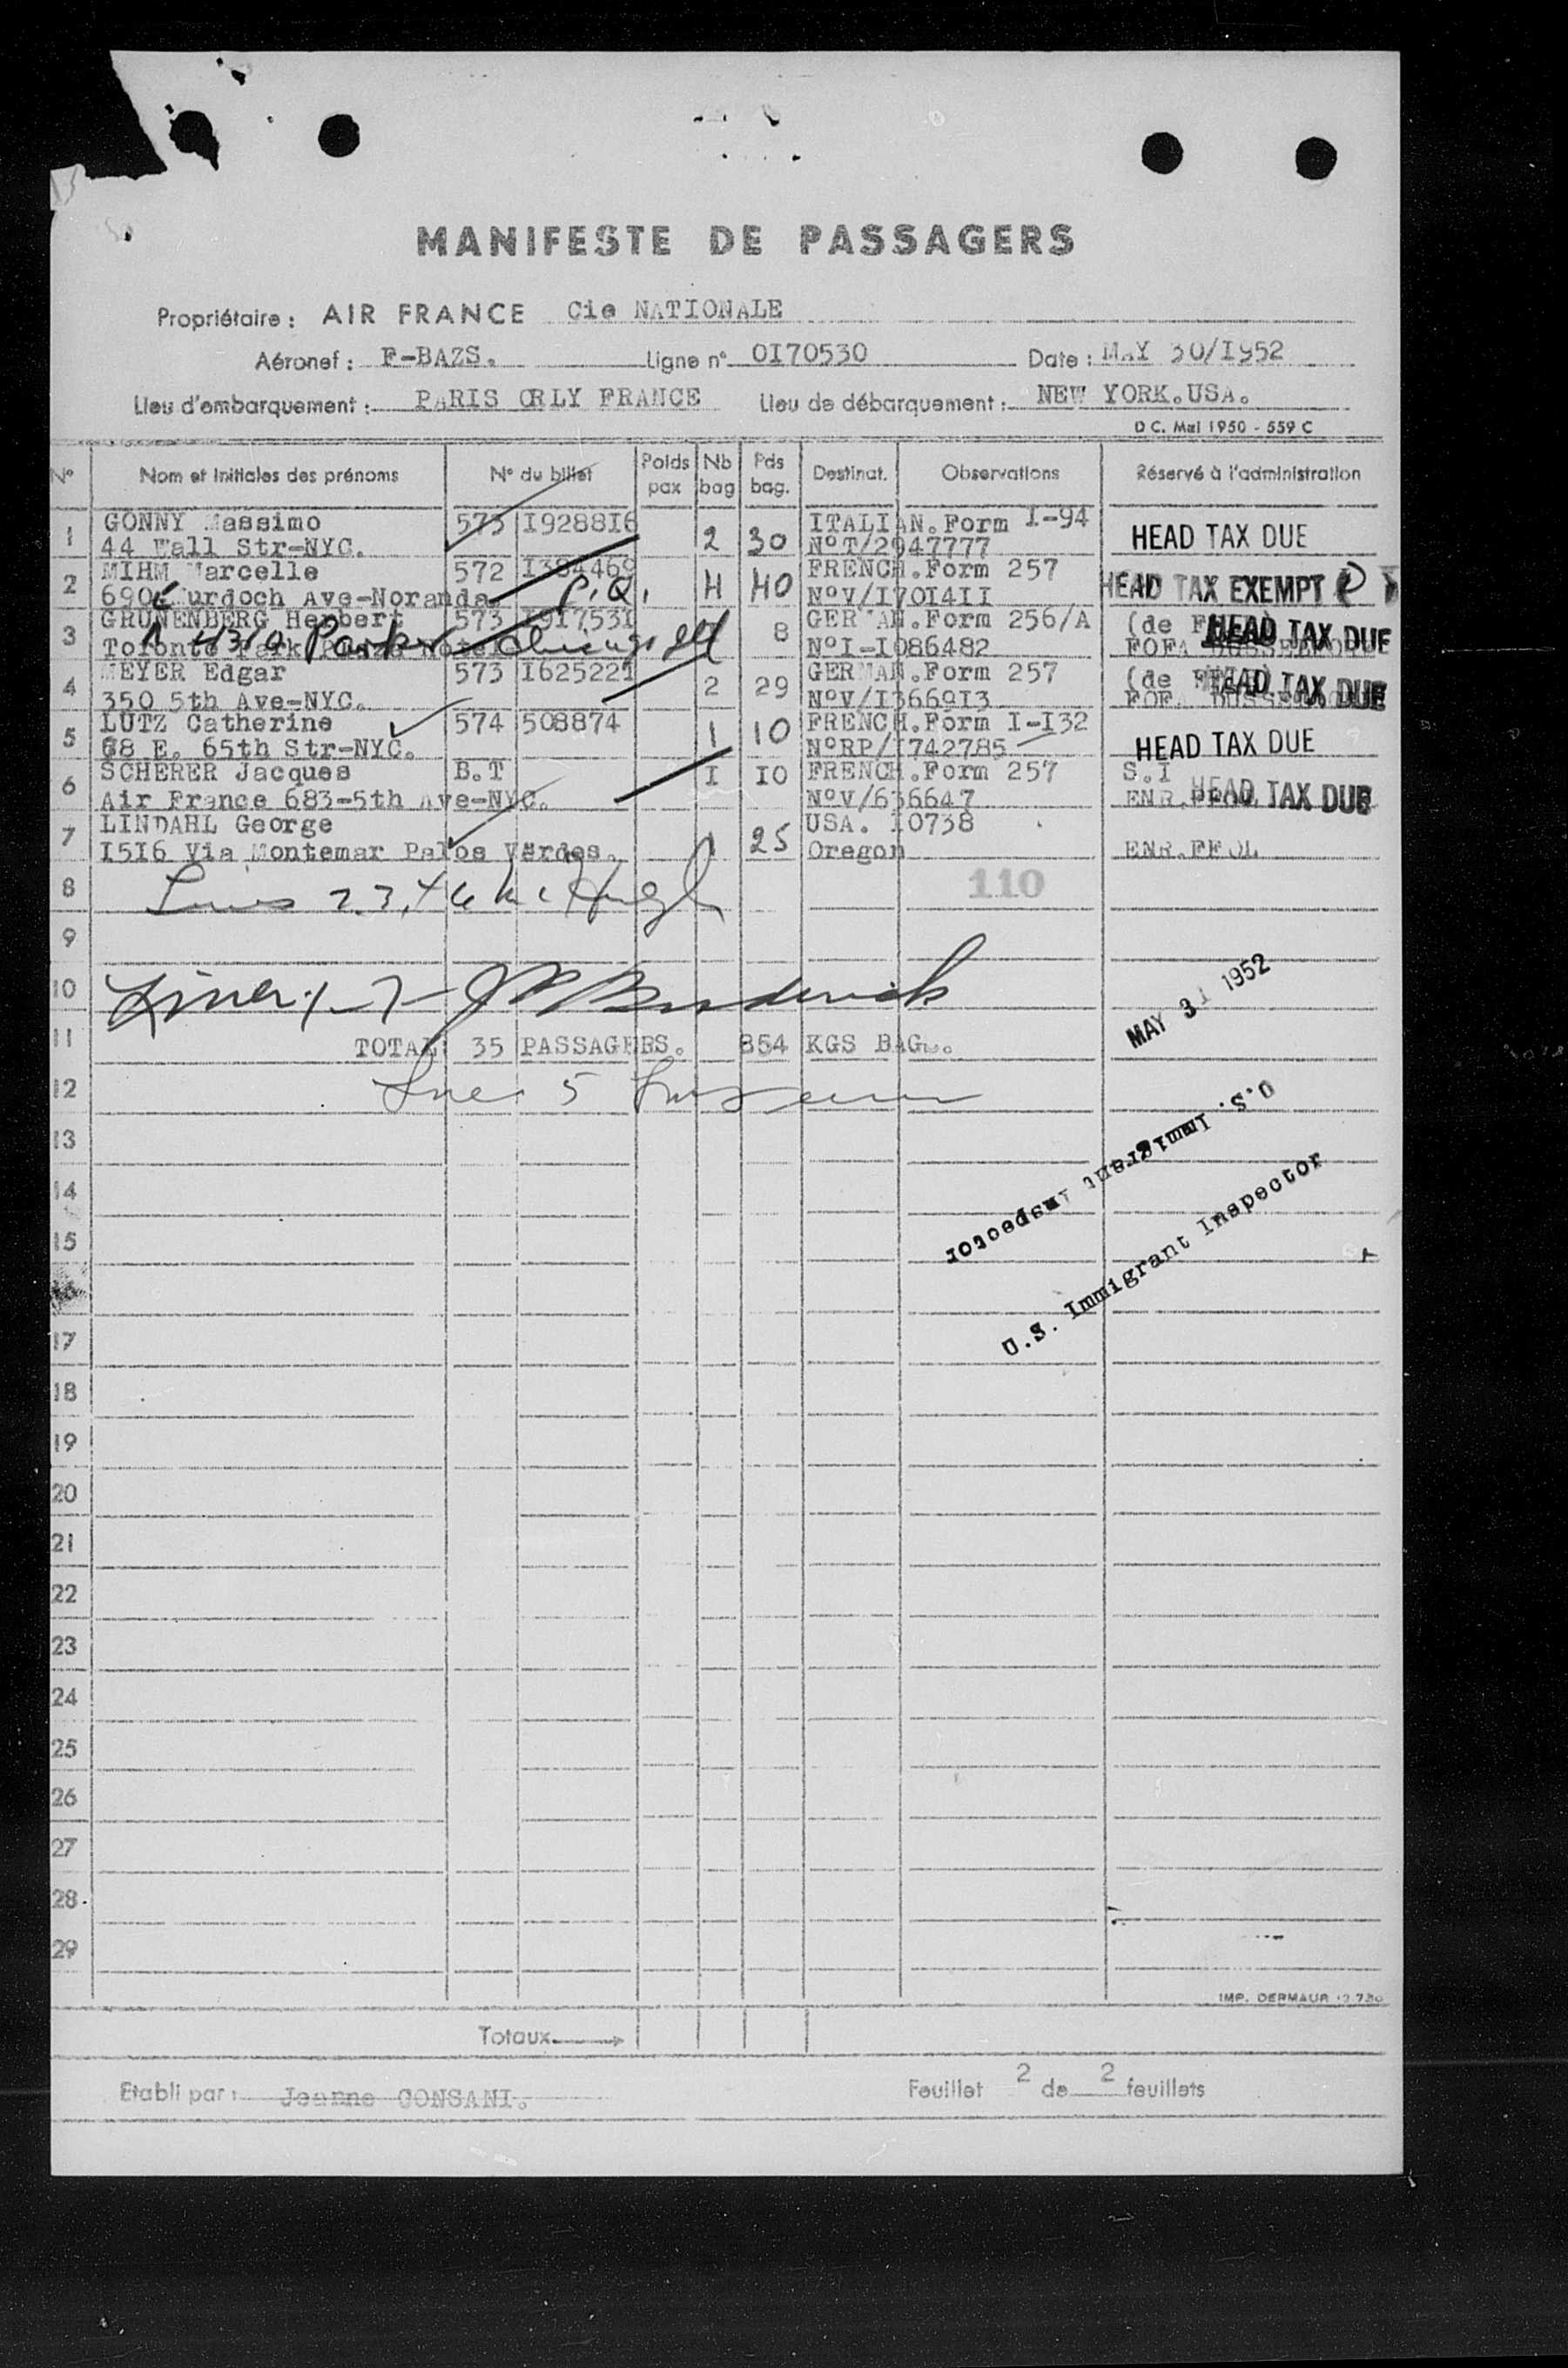 MANIFESTE DE PASSAGERS
Propriétaire : AIR FRANCE Cie NATIONALE
Aéronef : F-BAZS. Ligne n° OI70530 Date : MAY 30/I952
Lieu d'embarquement : PARIS ORLY FRANCE Lieu de débarquement : NEW YORK.USA.
D C. Mai 1950 - 559 C
N° Nom et Initiales des prénoms N° du billet Poids pax Nb bag Pds bag. Destinat. Observations Réservé à l'administration
1 GONNY Massimo 573 I9288I6 2 30 ITALIAN.Form I-94 HEAD TAX DUE
44 Wall Str-NYC. N°T/2947777
2 MIHM Marcelle 572 I384469 4 40 FRENCH.Form 257 HEAD TAX EXEMPT
690 Murdoch Ave-Noranda. P.Q. N°V/I70I4II
3 GRUNENBERG Herbert 573 I9I753I 8 GERMAN.Form 256/A (de HEAD TAX DUE
Toronto Park Plaza Hotel N°I-I086482 FOFA DUSSELDORF
4310 Parker Chicago Ill
4 MEYER Edgar 573 I62522I 2 29 GERMAN.Form 257 (de HEAD TAX DUE
350 5th Ave-NYC. N°V/I3669I3 FOFA DUSSELDORF
5 LUTZ Catherine 574 508874 1 10 FRENCH.Form I-I32
68 E. 65th Str-NYC. N°RP/I742785 HEAD TAX DUE
6 SCHERER Jacques B.T I I0 FRENCH.Form 257 S.I
Air France 683-5th Ave-NYC. N°V/636647 ENR.FFOL HEAD TAX DUE
7 LINDAHL George 1 25 USA. I0738
I5I6 Via Montemar Palos Verdes. Oregon ENR.FFOL
8 Lines 2,3,4,6 110
9
10 Lines 1-7
MAY 31 1952
11 TOTAL: 35 PASSAGERS. 854 KGS BAG..
12 Line 5
13
U.S. Immigrant Inspector
14
15
U.S. Immigrant Inspector
17
18
19
20
21
22
23
24
25
26
27
28
29
IMP. DERMAUR
Totaux
Etabli par : Jeanne CONSANI. Feuillet 2 de 2 feuillets